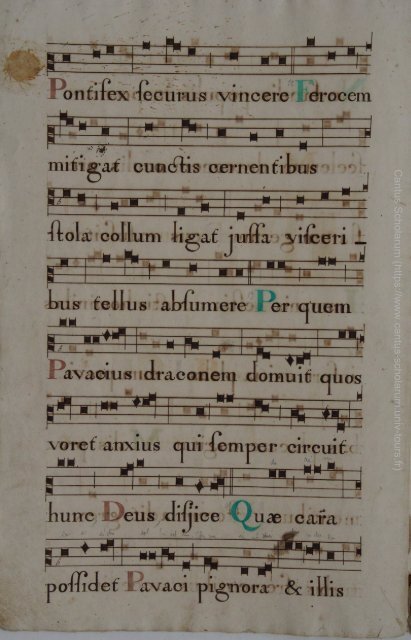 Pontifex securus vincere Ferocem
mitigat cunctis cernentibus
stola collum ligat jussa visceri –
bus tellus absumere Per quem
Pavacius draconem domuit quos
voret anxius qui semper circuit
hunc Deus disjice Quæ cara
possidet Pavaci pignora & illis
Cantus Scholarum (https://www.cantus-scholarum.univ-tours.fr)